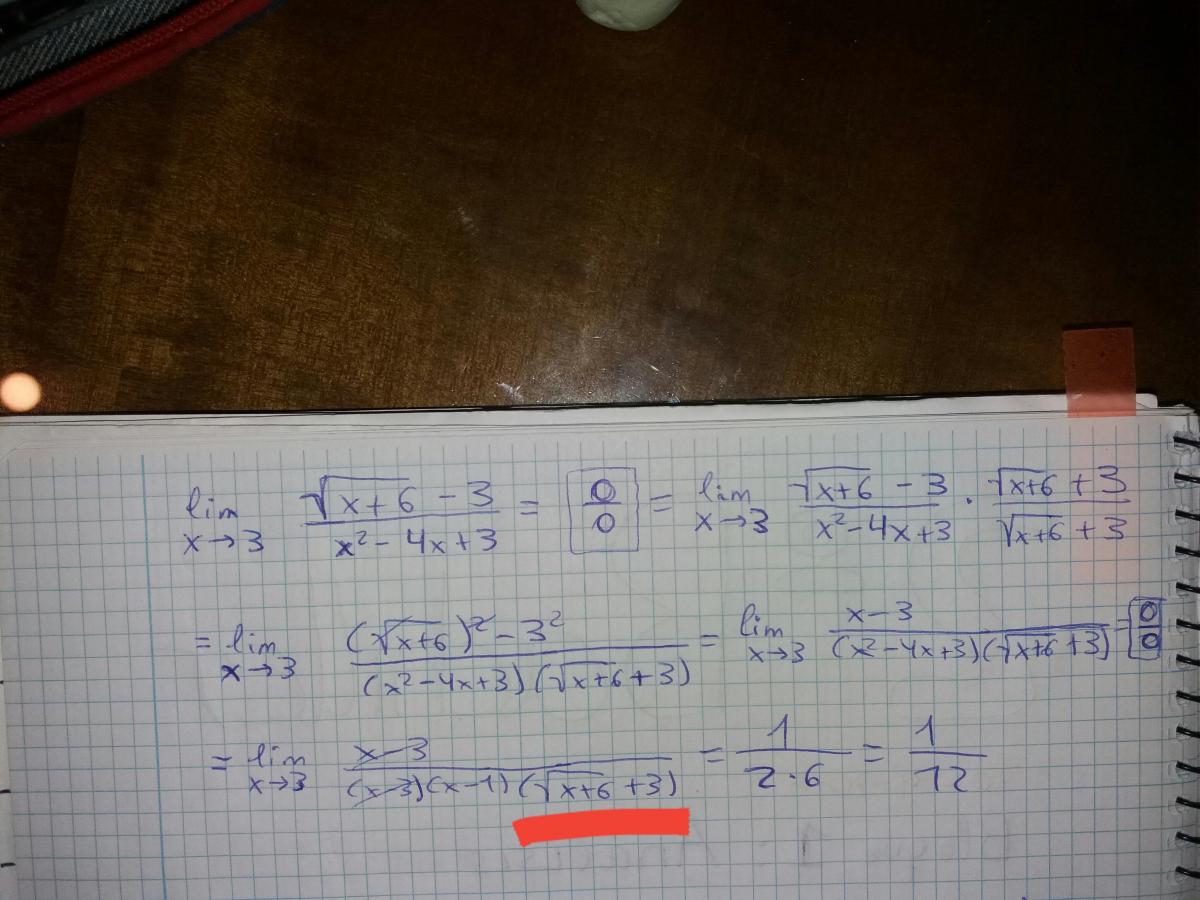 lim x→3 (√(x+6) - 3)/(x² - 4x + 3) = [0/0] = lim x→3 (√(x+6) - 3)/(x² - 4x + 3) · (√(x+6) + 3)/(√(x+6) + 3)
= lim x→3 ((√(x+6))² - 3²)/((x² - 4x + 3)(√(x+6) + 3)) = lim x→3 (x - 3)/((x² - 4x + 3)(√(x+6) + 3)) = [0/0]
= lim x→3 (x - 3)/((x - 3)(x - 1)(√(x+6) + 3)) = 1/(2·6) = 1/12